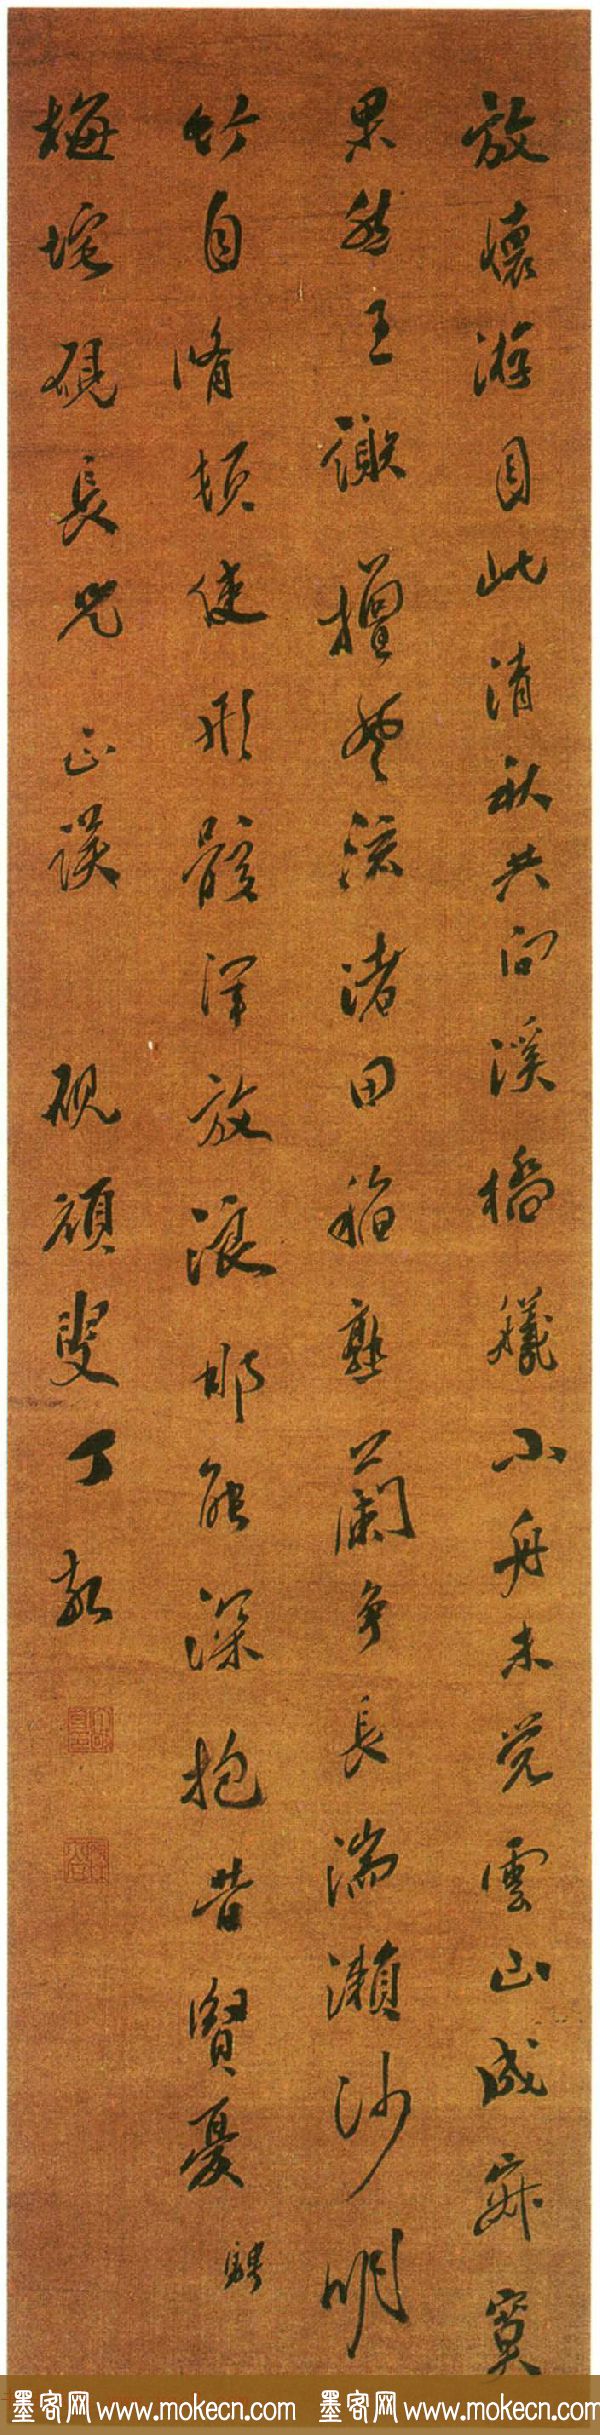 放懷游目此清秋共向溪橋艤小舟未覺雲山成寂寞
果然王謝擅風流渚田稻熟蘭爭長湍瀨沙明
竹自脩頓使形骸渾放浪那能深抱昔賢憂 騁
梅垞硯長兄 正謨 硯頑叟丁敬
墨客网 www.mokecn.com 墨客网 www.mokecn.com